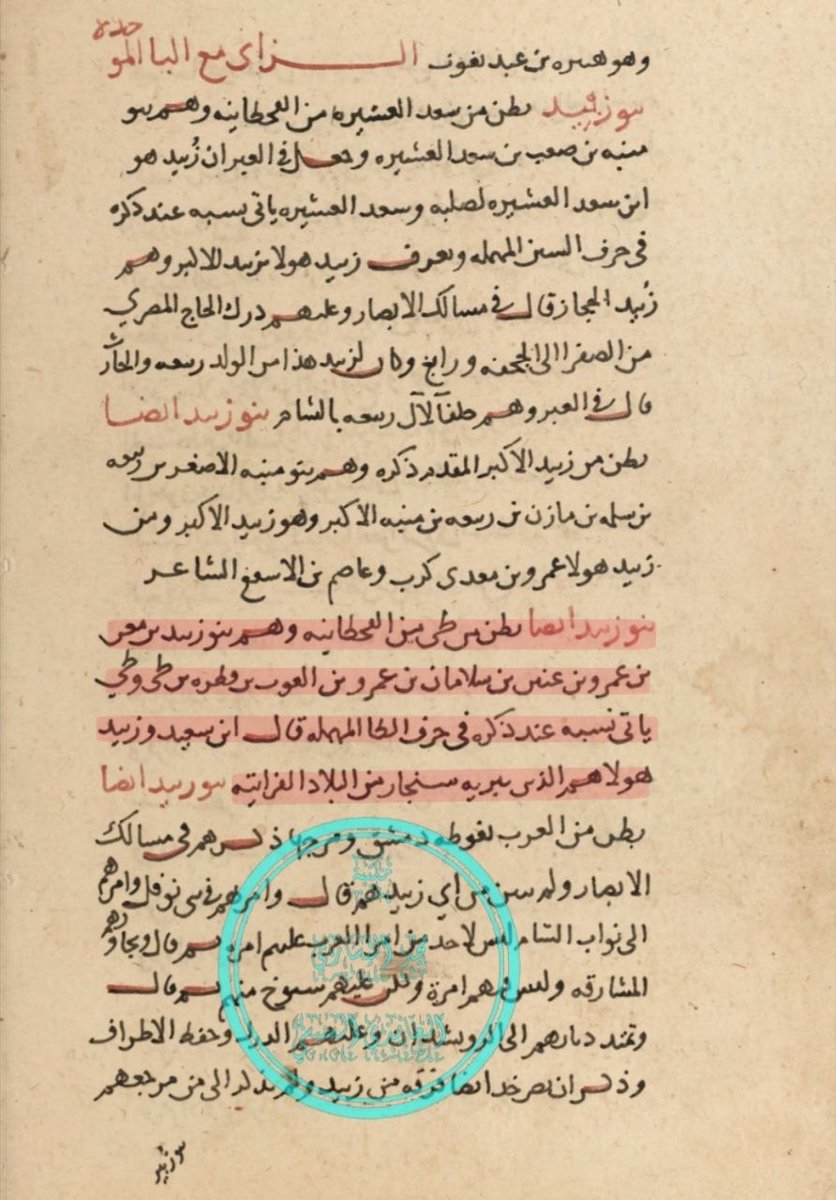 وهو هبيره بن عبد يغوث الزاى مع البا الموحده
بنو زُبَيد بطن من سعد العشيره من القحطانيه وهم بنو
منبه بن صعب بن سعد العشيره وجعل في العبر ان زُبيد هو
ابن سعد العشيره لصلبه وسعد العشيره ياتى نسبه عند ذكره
فى حرف السين المهمله وتعرف زبيد هولا بزبيد الاكبر وهم
زُبيد الحجاز قال في مسالك الابصار وعليهم درك الحاج المصري
من الصفرا الى الجحفه ورابغ وكان لزبيد هذا من الولد ربيعه والحارث
قال في العبر وهم حلفا لآل ربيعه بالشام بنو زبيد ايضا
بطن من زبيد الاكبر المقدم ذكره وهم بنو منبه الاصغر بن ربيعه
بن سلمه بن مازن بن ربيعه بن منبه الاكبر وهو زبيد الاكبر ومن
زبيد هولا عمرو بن معدى كرب وعاصم بن الاسقع الشاعر
بنو زبيد ايضا بطن من طى من القحطانيه وهم بنو زبيد بن معن
بن عمرو بن عنيز بن سلامان بن عمرو بن الغوث بن فطره بن طى وطي
ياتى نسبه عند ذكره فى حرف الطا المهمله قال ابن سعيد وزبيد
هولا هم الذين ببريه سنجار من البلاد الفراتيه بنو زبيد ايضا
بطن من العرب بغوطه دمشق ومرجها ذكرهم فى مسالك
الابصار ولم يبين من اي زبيد هم قال وامرهم فى بنى نوفل وامرهم
الى نواب الشام ليس لاحد من امرا العرب عليهم امره ثم قال ويجاورهم
المشارقه وليس فيهم امرة ولكن عليهم شيوخ منهم ثم قال
وتمتد ديارهم الى وعليهم الدرك وحفظ الاطراف
وذكر ان بصرخد ايضا فرقه من زبيد ولم يذكر الى من مرجعهم
بنو زبير